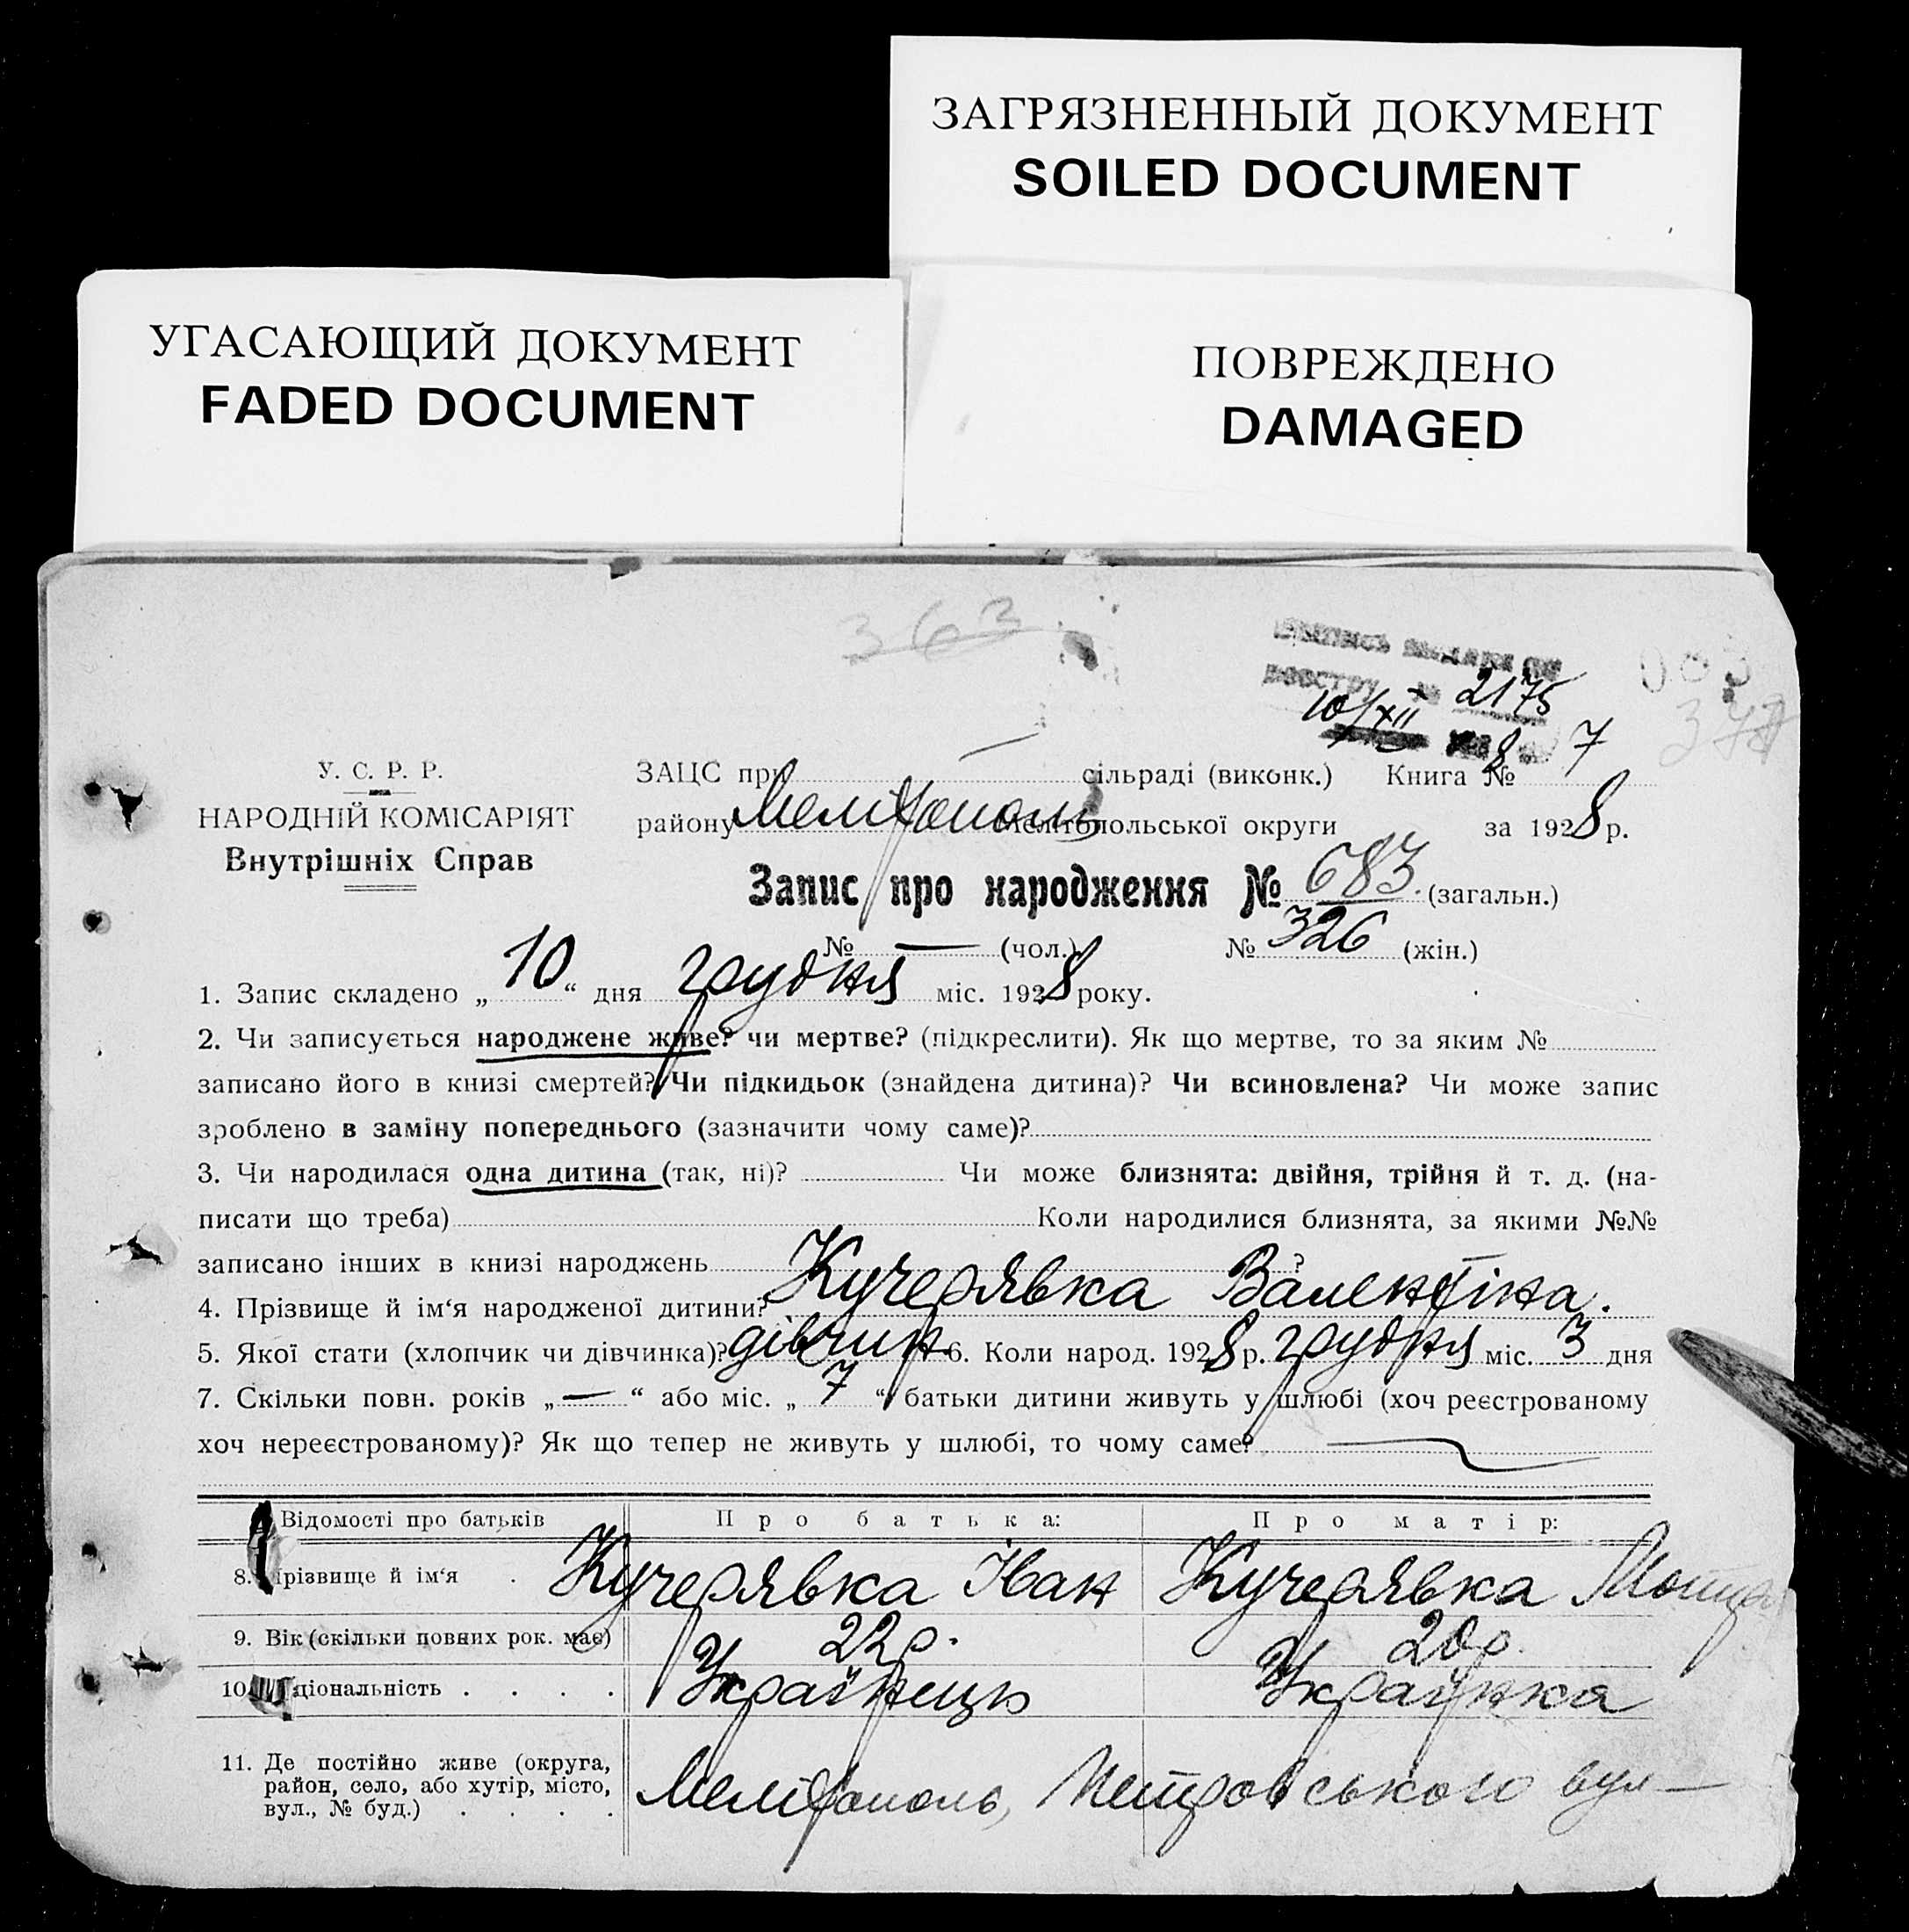 ЗАГРЯЗНЕННЫЙ ДОКУМЕНТ
SOILED DOCUMENT
УГАСАЮЩИЙ ДОКУМЕНТ
FADED DOCUMENT
ПОВРЕЖДЕНО
DAMAGED
363
2175
10/XII 8
У. С. Р. Р.
НАРОДНІЙ КОМІСАРІЯТ
Внутрішніх Справ
ЗАЦС при — сільраді (виконк.) Книга № 7
району Мелітополь Мелітопольської округи за 1928 р.
Запис про народження № 683 (загальн.)
№ — (чол.) № 326 (жін.)
1. Запис складено „ 10 “ дня грудня міс. 1928 року.
2. Чи записується народжене живе? чи мертве? (підкреслити). Як що мертве, то за яким №
записано його в книзі смертей? Чи підкидьок (знайдена дитина)? Чи всиновлена? Чи може запис
зроблено в заміну попереднього (зазначити чому саме)?
3. Чи народилася одна дитина (так, ні)? Чи може близнята: двійня, трійня й т. д. (на-
писати що треба) Коли народилися близнята, за якими №№
записано інших в книзі народжень
4. Прізвище й ім‘я народженої дитини? Кучерявка Валентіна.
5. Якої стати (хлопчик чи дівчинка)? дівчин 6. Коли народ. 1928 р. грудня міс. 3 дня
7. Скільки повн. років „ — “ або міс. „ 7 “ батьки дитини живуть у шлюбі (хоч реєстрованому
хоч нереєстрованому)? Як що тепер не живуть у шлюбі, то чому саме? —
Відомості про батьків Про батька: Про матір:
8. Прізвище й ім‘я . Кучерявка Іван Кучерявка
9. Вік (скільки повних рок. має) 22 р. 20 р.
10. Національність . . . . Українець Українка
11. Де постійно живе (округа,
район, село, або хутір, місто,
вул., № буд.) . . . . Мелітополь, Петровського вул —